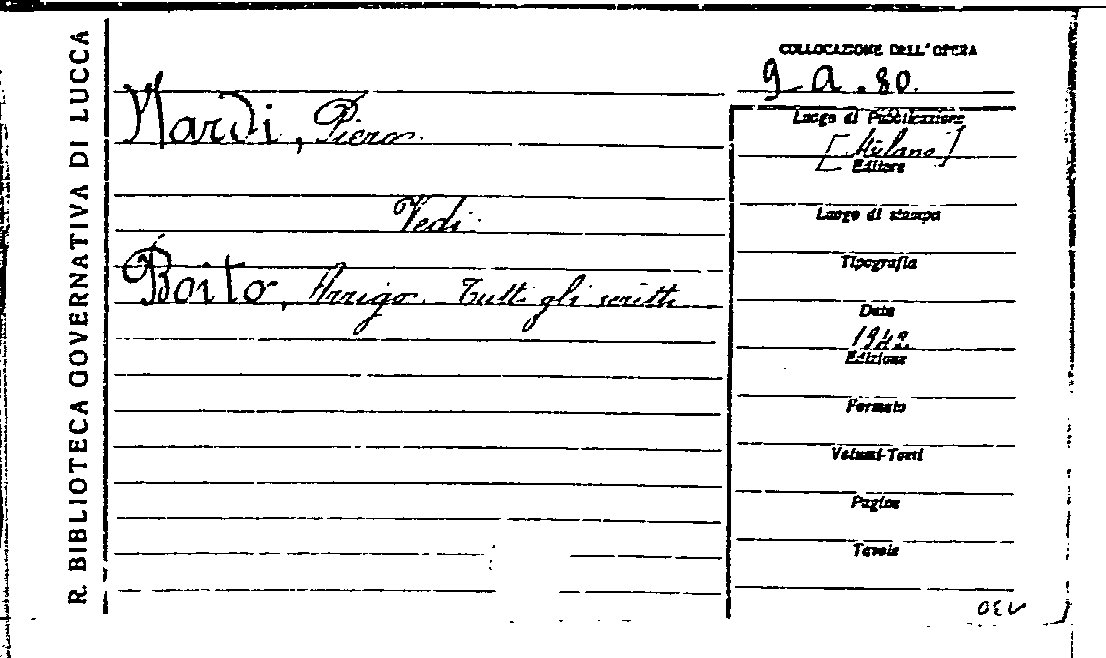 R. BIBLIOTECA GOVERNATIVA DI LUCCA
COLLOCAZIONE DELL'OPERA
9. a. 80.
Nardi, Piero
Vedi:
Boito, Arrigo. Tutti gli scritti
Luogo di Pubblicazione
[Milano]
Editore
Luogo di stampa
Tipografia
Data
1942.
Edizione
Formato
Volumi-Tomi
Pagine
Tavole